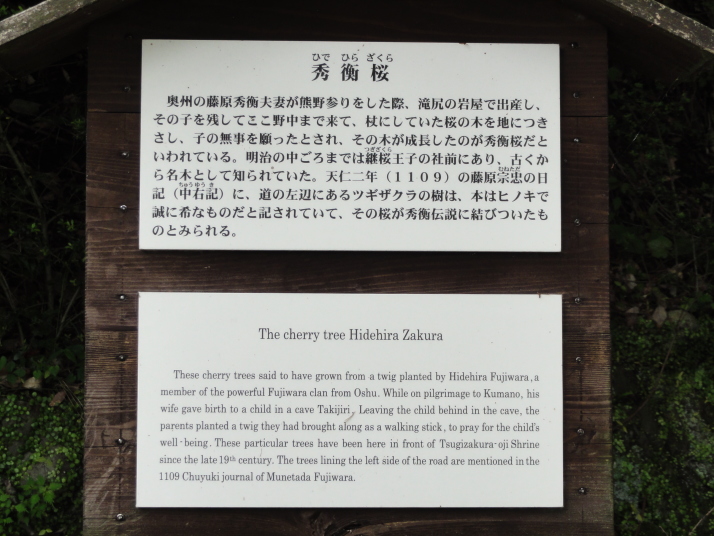 ひで ひら ざくら
秀衡桜
奥州の藤原秀衡夫妻が熊野参りをした際、滝尻の岩屋で出産し、
その子を残してここ野中まで来て、杖にしていた桜の木を地につき
さし、子の無事を願ったとされ、その木が成長したのが秀衡桜だと
つぎざくら
いわれている。明治の中ごろまでは継桜王子の社前にあり、古くか
むねただ
ら名木として知られていた。天仁二年（1109）の藤原宗忠の日
ちゅうゆうき
記（中右記）に、道の左辺にあるツギザクラの樹は、本はヒノキで
誠に希なものだと記されていて、その桜が秀衡伝説に結びついたも
のとみられる。
The cherry tree Hidehira Zakura
These cherry trees said to have grown from a twig planted by Hidehira Fujiwara, a
member of the powerful Fujiwara clan from Oshu. While on pilgrimage to Kumano, his
wife gave birth to a child in a cave Takijiri. Leaving the child behind in the cave, the
parents planted a twig they had brought along as a walking stick, to pray for the child's
well-being. These particular trees have been here in front of Tsugizakura-oji Shrine
since the late 19th century. The trees lining the left side of the road are mentioned in the
1109 Chuyuki journal of Munetada Fujiwara.